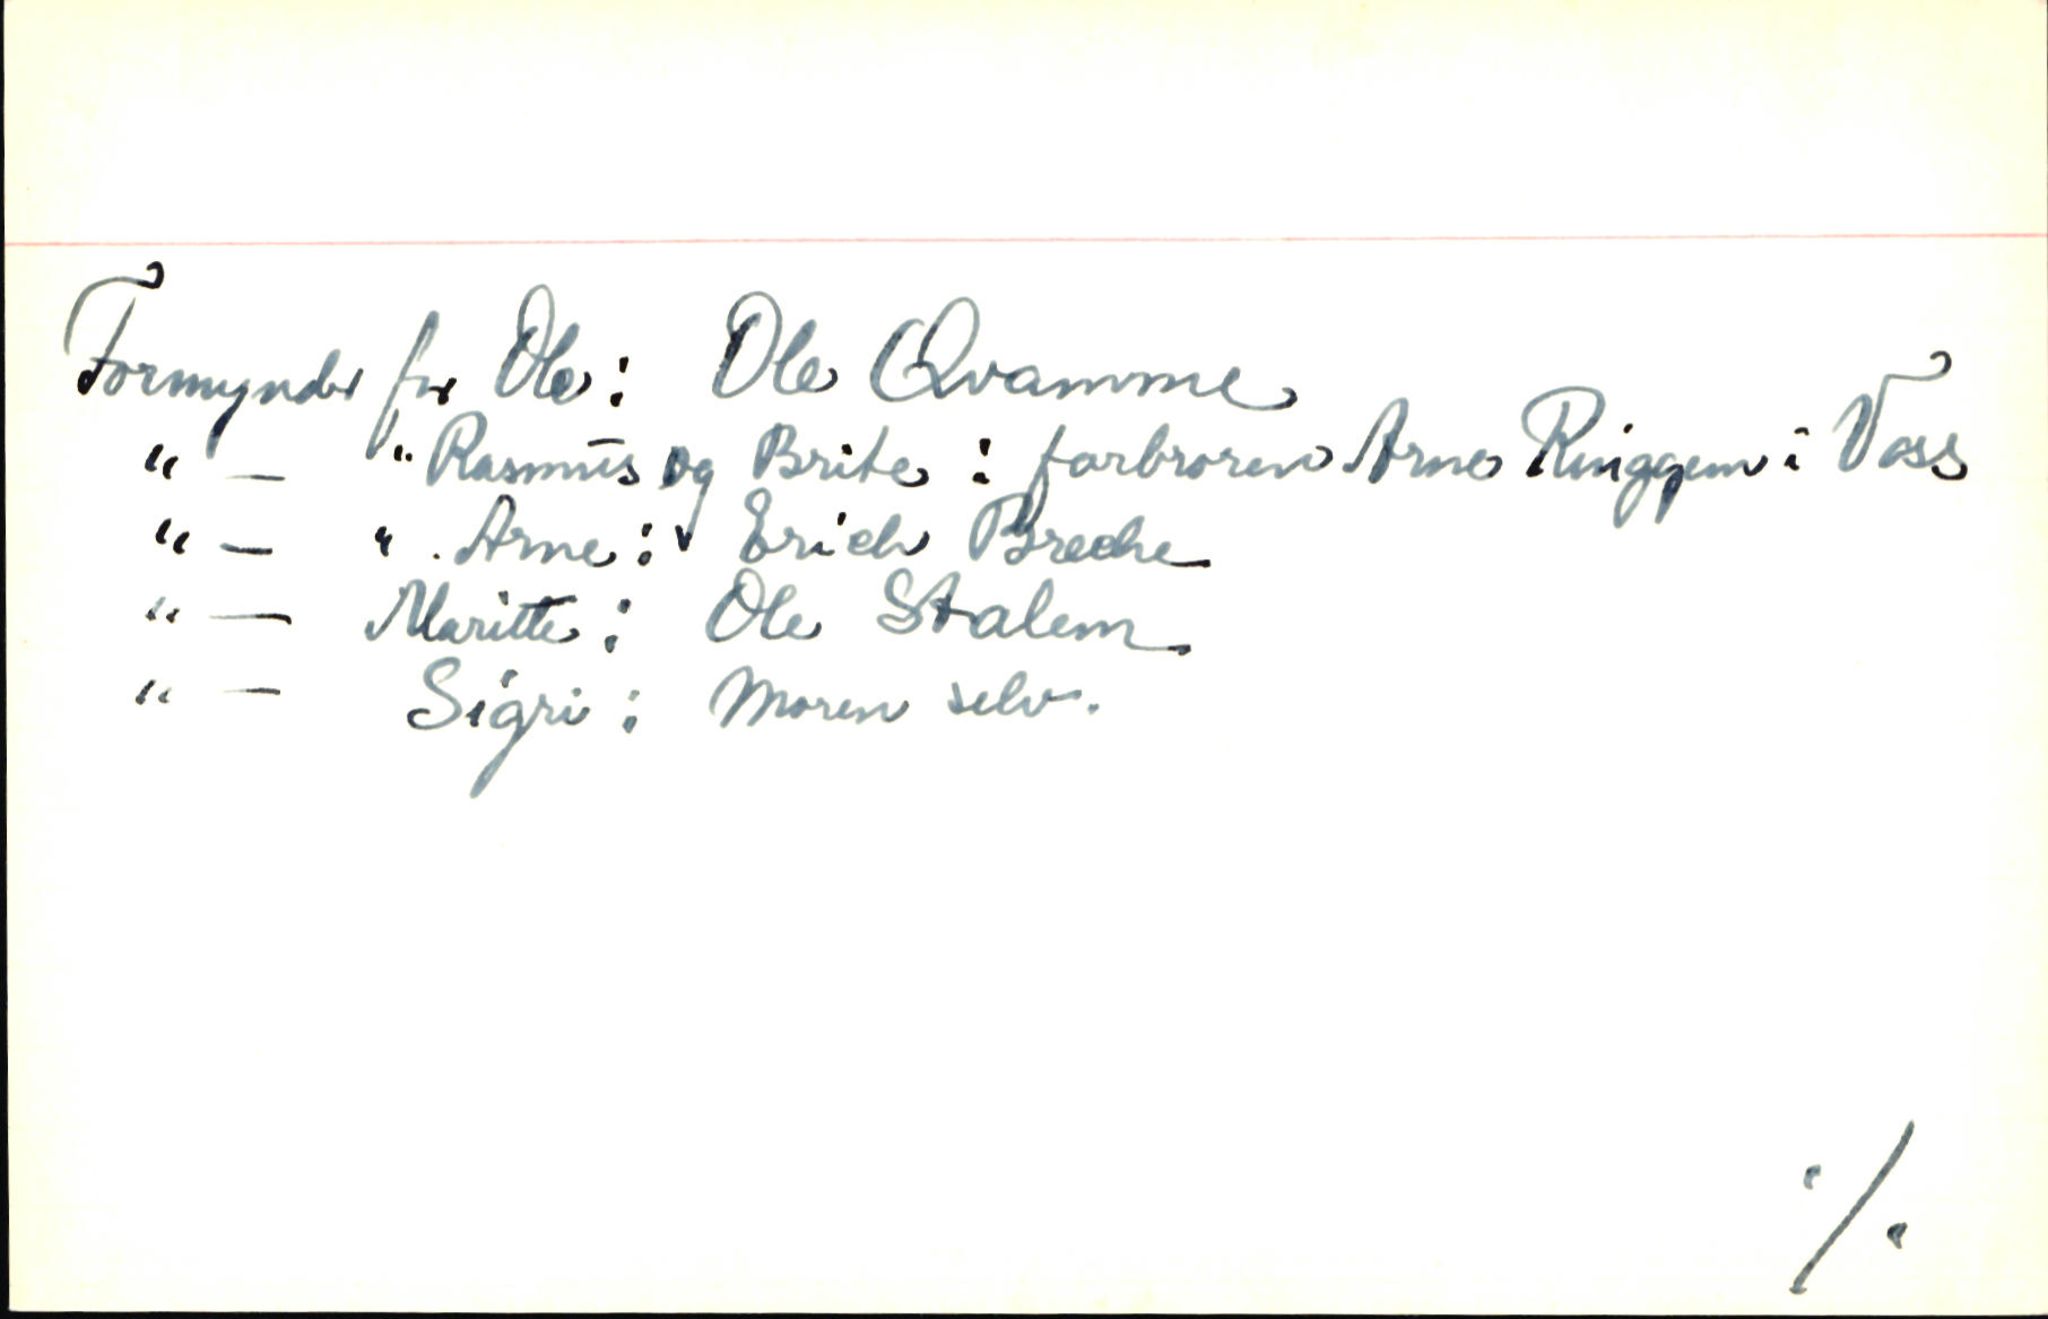 Formynder for Ole: Ole Qvamme
" — " Rasmus og Brite: farbroren Arne Ringgem i Voss
" — " Arne: Erich Breche
" — Maritte: Ole Stalem
" — Sigri: Moren selv.
·/.